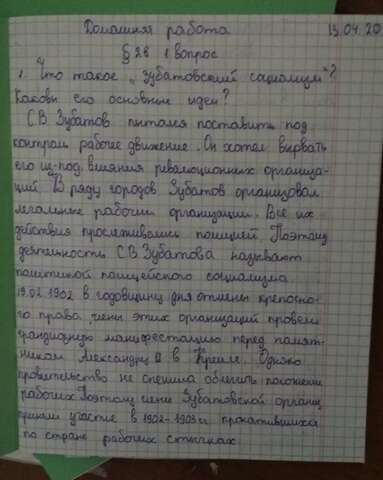 Домашняя работа 15.04.20
§ 28 1 вопрос
1. Что такое „зубатовский социализм"?
Каковы его основные идеи?
С.В. Зубатов пытался поставить под
контроль рабочее движение. Он хотел вырвать
его из-под влияния революционных организа-
ций. В ряду городов Зубатов организовал
легальные рабочии организации. Все их
действия прослеживались полицией. Поэтому
деятельность С.В. Зубатова называют
политикой полицейского социализма.
19.02.1902 в годовщину дня отмены крепостно-
го права, члены этих организаций провели
грандиозную манифестацию перед памят-
ником Александру II в Кремле. Однако
правительство не спешила облегчить положение
рабочих. Поэтому члены Зубатовской организ.
приняли участие в 1902-1903г. прокатившихся
по стране рабочих стычках